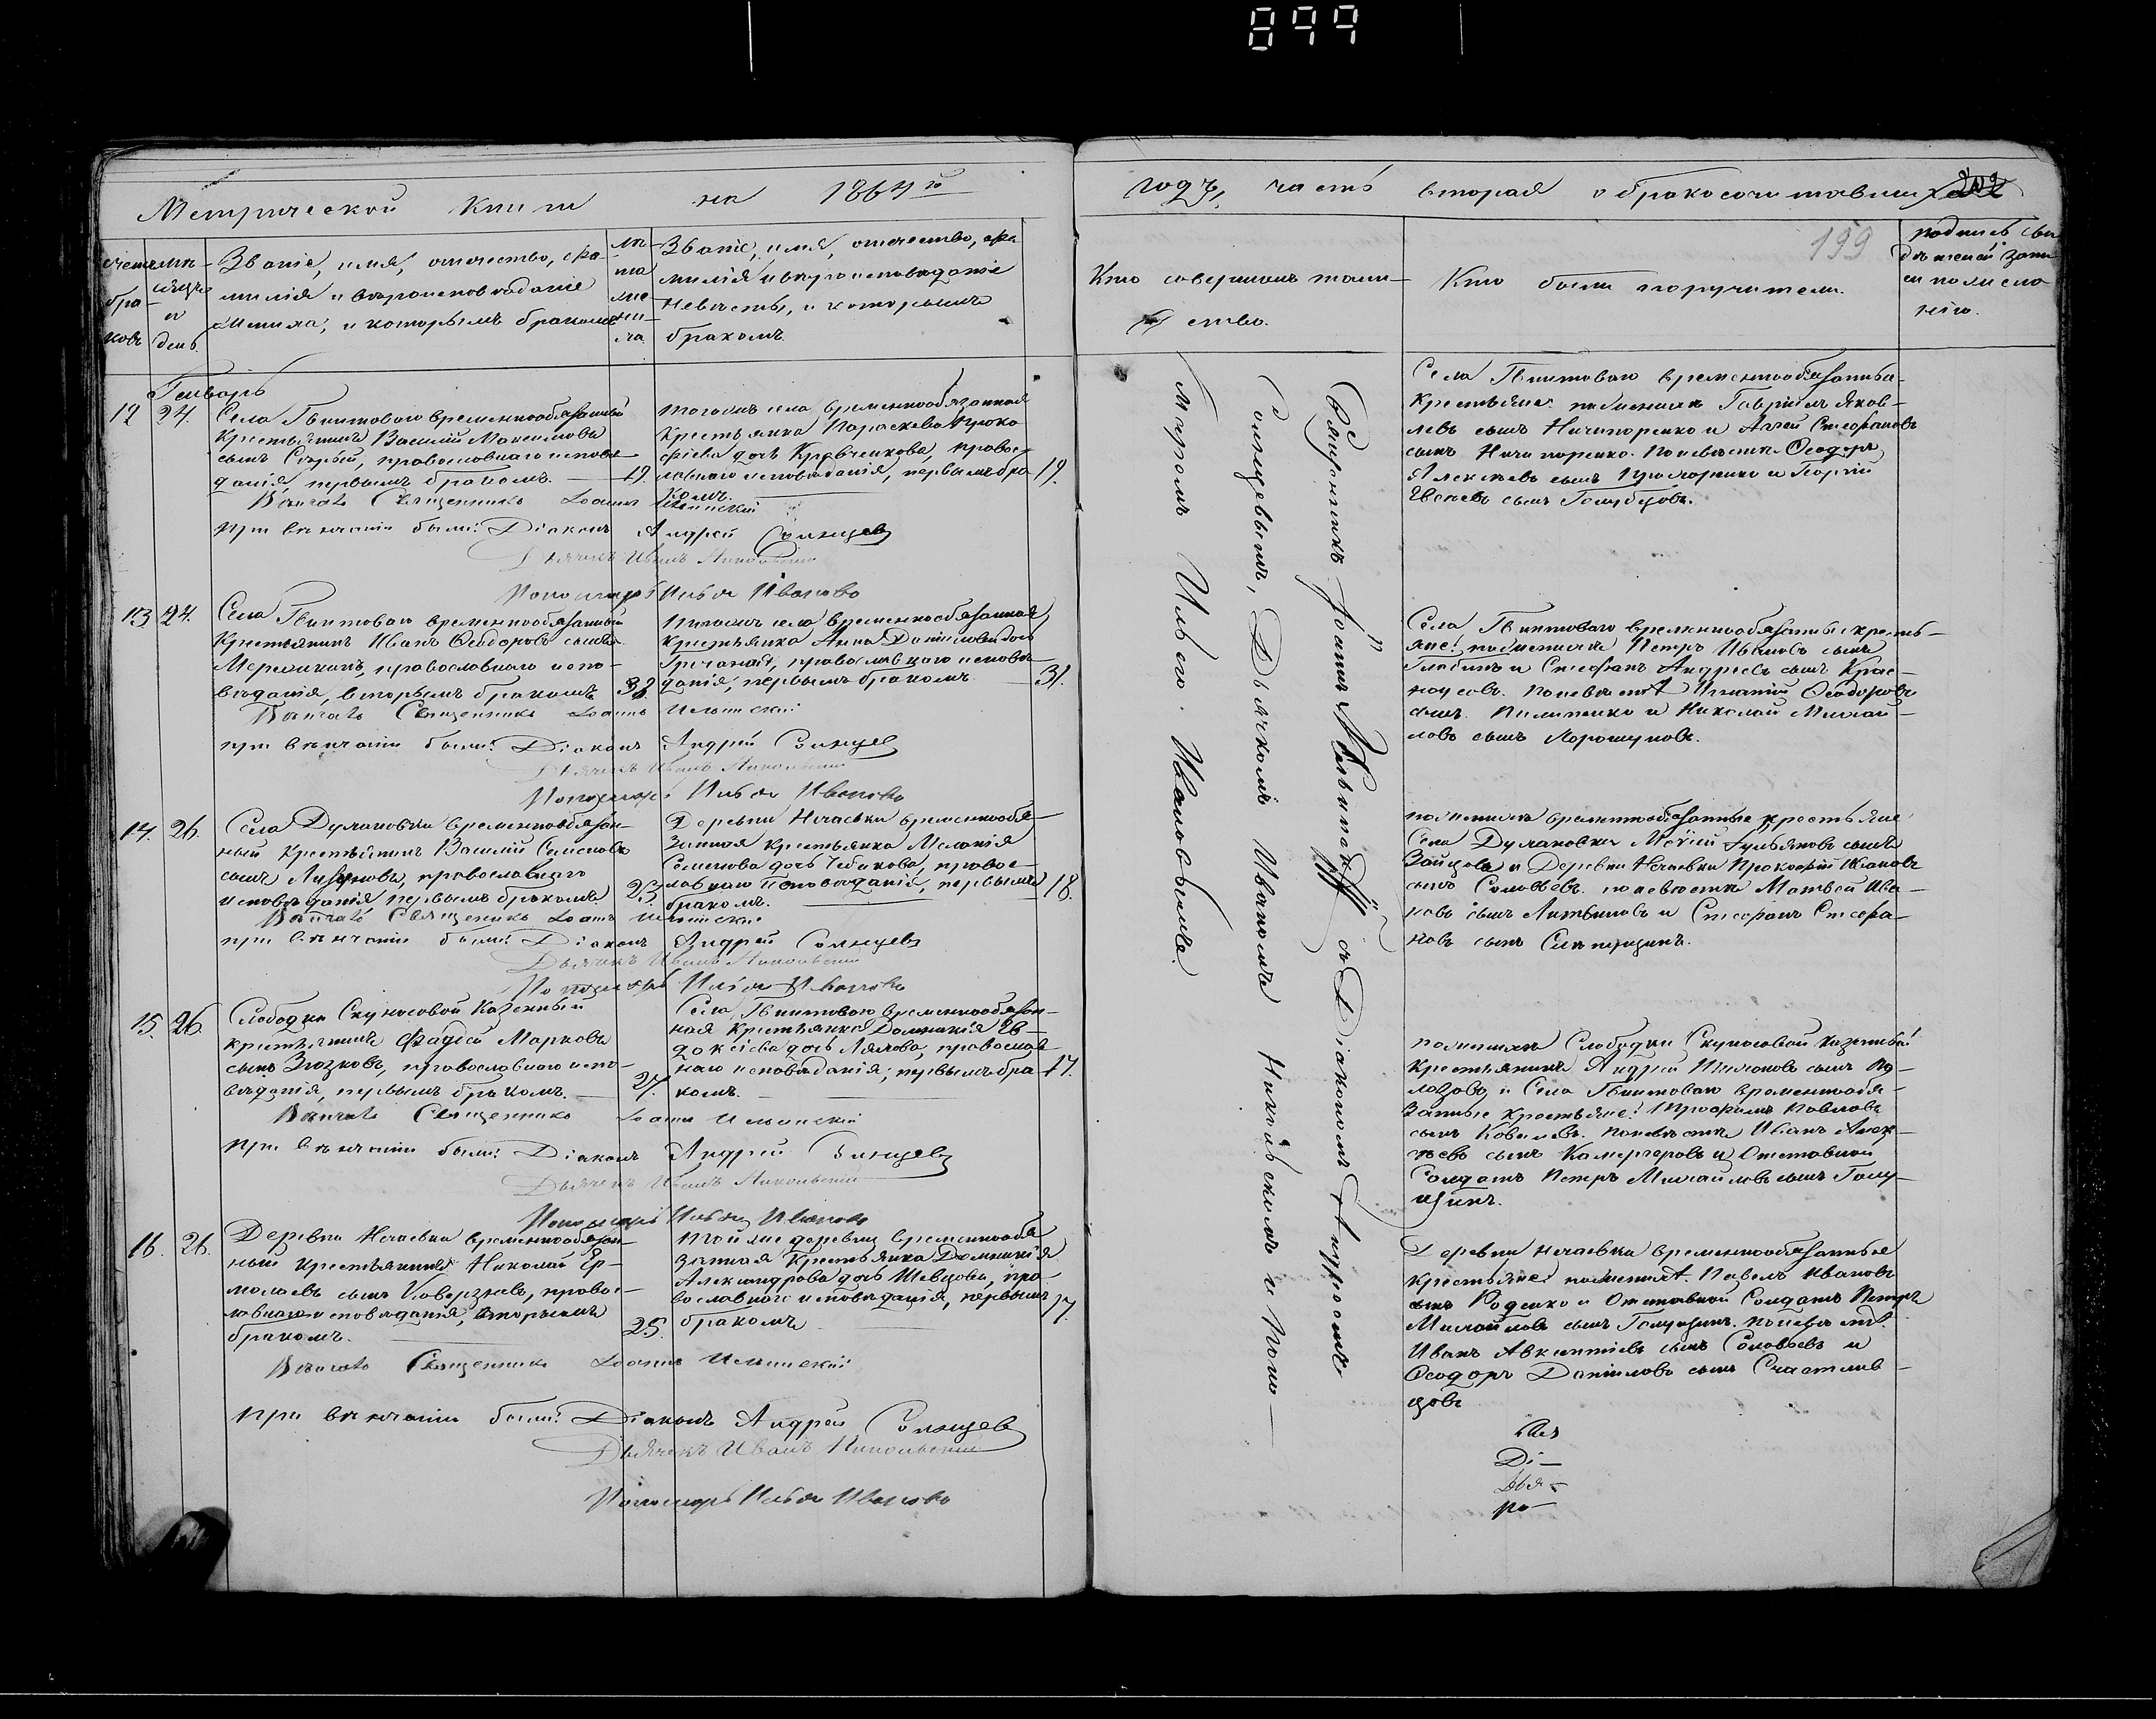 899
Метрической книги на 1864й
годъ, часть вторая о бракосочетавшихся
202
159
Счетъ браковъ
Мѣсяцъ и день.
Званіе, имя, отчество, фа-
милія и вѣроисповѣданіе
жениха, и которымъ бракомъ
лѣта жениха.
Званіе, имя, отчество, фа
милія и вѣроисповѣданіе
невѣсты, и которымъ
бракомъ.
Кто совершалъ таин-
ство.
Кто были поручители.
подпись сви
дѣтелей запи
си по жела
нію.
Генварь
12 24.
Села Гвинтоваго временнообязанный
крестьянинъ Василій Максимовъ
сынъ Старый, православнаго испове
данія, первымъ бракомъ. 19.
тогожъ села временнообязанная
крестьянка Параскева Проко
фіева дочь Кравченкова, право
славнаго исповѣданія, первымъ бра 19.
комъ.
Села Гвинтоваго временнообязанные
крестьяне: по женихѣ Гавріилъ Яков-
левъ сынъ Ничипоренко и Стефановъ
сынъ Ничипоренко. По невѣстѣ Ѳеодоръ
Алексѣевъ сынъ и Георгій
Евсѣевъ сынъ Голубцовъ.
Вѣнчалъ Священникъ Іоаннъ Ильинскій
при вѣнчаніи были: Діаконъ Андрей Солнцевъ
Дьячекъ Иванъ Никольскій
Пономарь Илья Ивановъ
13 24.
Села Гвинтоваго временнообязанный
крестьянинъ Иванъ Ѳеодоровъ сынъ
православнаго испо-
вѣданія, вторымъ бракомъ 32.
тогожъ села временнообязанная
крестьянка Анна Даніилова дочь
Гречаная, православнаго исповѣ
данія, первымъ бракомъ 31.
Села Гвинтоваго временнообязанные кресть-
яне: по женихѣ Петръ Ивановъ сынъ
и Стефанъ Андреевъ сынъ Крас-
ноусовъ. По невѣстѣ Игнатій Ѳеодоровъ
сынъ Пилипенко и Николай Михай-
ловъ сынъ Хорошуновъ.
Вѣнчалъ Священникъ Іоаннъ Ильинскій
при вѣнчаніи были: Діаконъ Андрей Солнцевъ
Дьячекъ Иванъ Никольскій
Пономарь Илья Ивановъ
14. 26.
Села Думановки временнообязан-
ный крестьянинъ Василій Семеновъ
сынъ православнаго
исповѣданія первымъ бракомъ 23.
Деревни Нечаевки временнообя-
занная крестьянка Меланія
Семенова дочь Чебикова, правос-
лавнаго исповѣданія, первымъ 18.
бракомъ.
по женихѣ временнообязанные крестьяне
Села Думановки сынъ
Зайцовъ и Деревни Нечаевки Прокофій Ивановъ
сынъ Соловьевъ. по невѣстѣ Матвей Ива-
новъ сынъ Литвиновъ и Стефанъ Стефа-
новъ сынъ
Вѣнчалъ Священникъ Іоаннъ Ильинскій
при вѣнчаніи были: Діаконъ Андрей Солнцевъ
Дьячекъ Иванъ Никольскій
Пономарь Илья Ивановъ
15. 26.
Слободки Скуносовой Казенный
крестьянинъ Фадей Марковъ
сынъ Глазковъ, православнаго испо-
вѣданія, первымъ бракомъ. 27.
Села Гвинтоваго временнообязан-
ная крестьянка Домникія Ев-
докіева дочь Лялова, православ
наго исповѣданія, первымъ бра 17.
комъ.
по женихѣ Слободки Скуносовой казенный
крестьянинъ Андрей сынъ
и Села Гвинтоваго временнообя-
занные крестьяне: Трофимъ Павловъ
сынъ Ковалевъ. по невѣстѣ Иванъ Алек-
сѣевъ сынъ Камергеровъ и Отставной
Солдатъ Петръ Михайловъ сынъ Голу-
Вѣнчалъ Священникъ Іоаннъ Ильинскій
при вѣнчаніи были: Діаконъ Андрей Солнцевъ
Дьячекъ Иванъ Никольскій
Пономарь Илья Ивановъ
16. 26.
Деревни Нечаевки временнообязан-
ный крестьянинъ Николай Ер-
молаевъ сынъ Коверзневъ, правос-
лавнаго исповѣданія, вторымъ 25.
бракомъ.
той же деревни временнообя
занная крестьянка Домникія
Александрова дочь Шевцова, пра-
вославнаго исповѣданія, первымъ 17.
бракомъ
Деревни Нечаевки временнообязанные
крестьяне: по женихѣ. Павелъ Ивановъ
сынъ Роденко и Отставной Солдатъ Петръ
Михайловъ сынъ по невѣстѣ.
Иванъ Авксентіевъ сынъ Соловьевъ и
Ѳеодоръ Даніиловъ сынъ Счастлив-
цовъ
Вѣнчалъ Священникъ Іоаннъ Ильинскій
при вѣнчаніи были: Діаконъ Андрей Солнцевъ
Дьячекъ Иванъ Никольскій
Пономарь Илья Ивановъ
Священникъ Іоаннъ Ильинскій съ Діакономъ Андреемъ
Солнцевымъ, Дьячкомъ Иваномъ Никольскимъ и Поно-
маремъ Ильею Ивановымъ.
Ді-
Дья-
По-